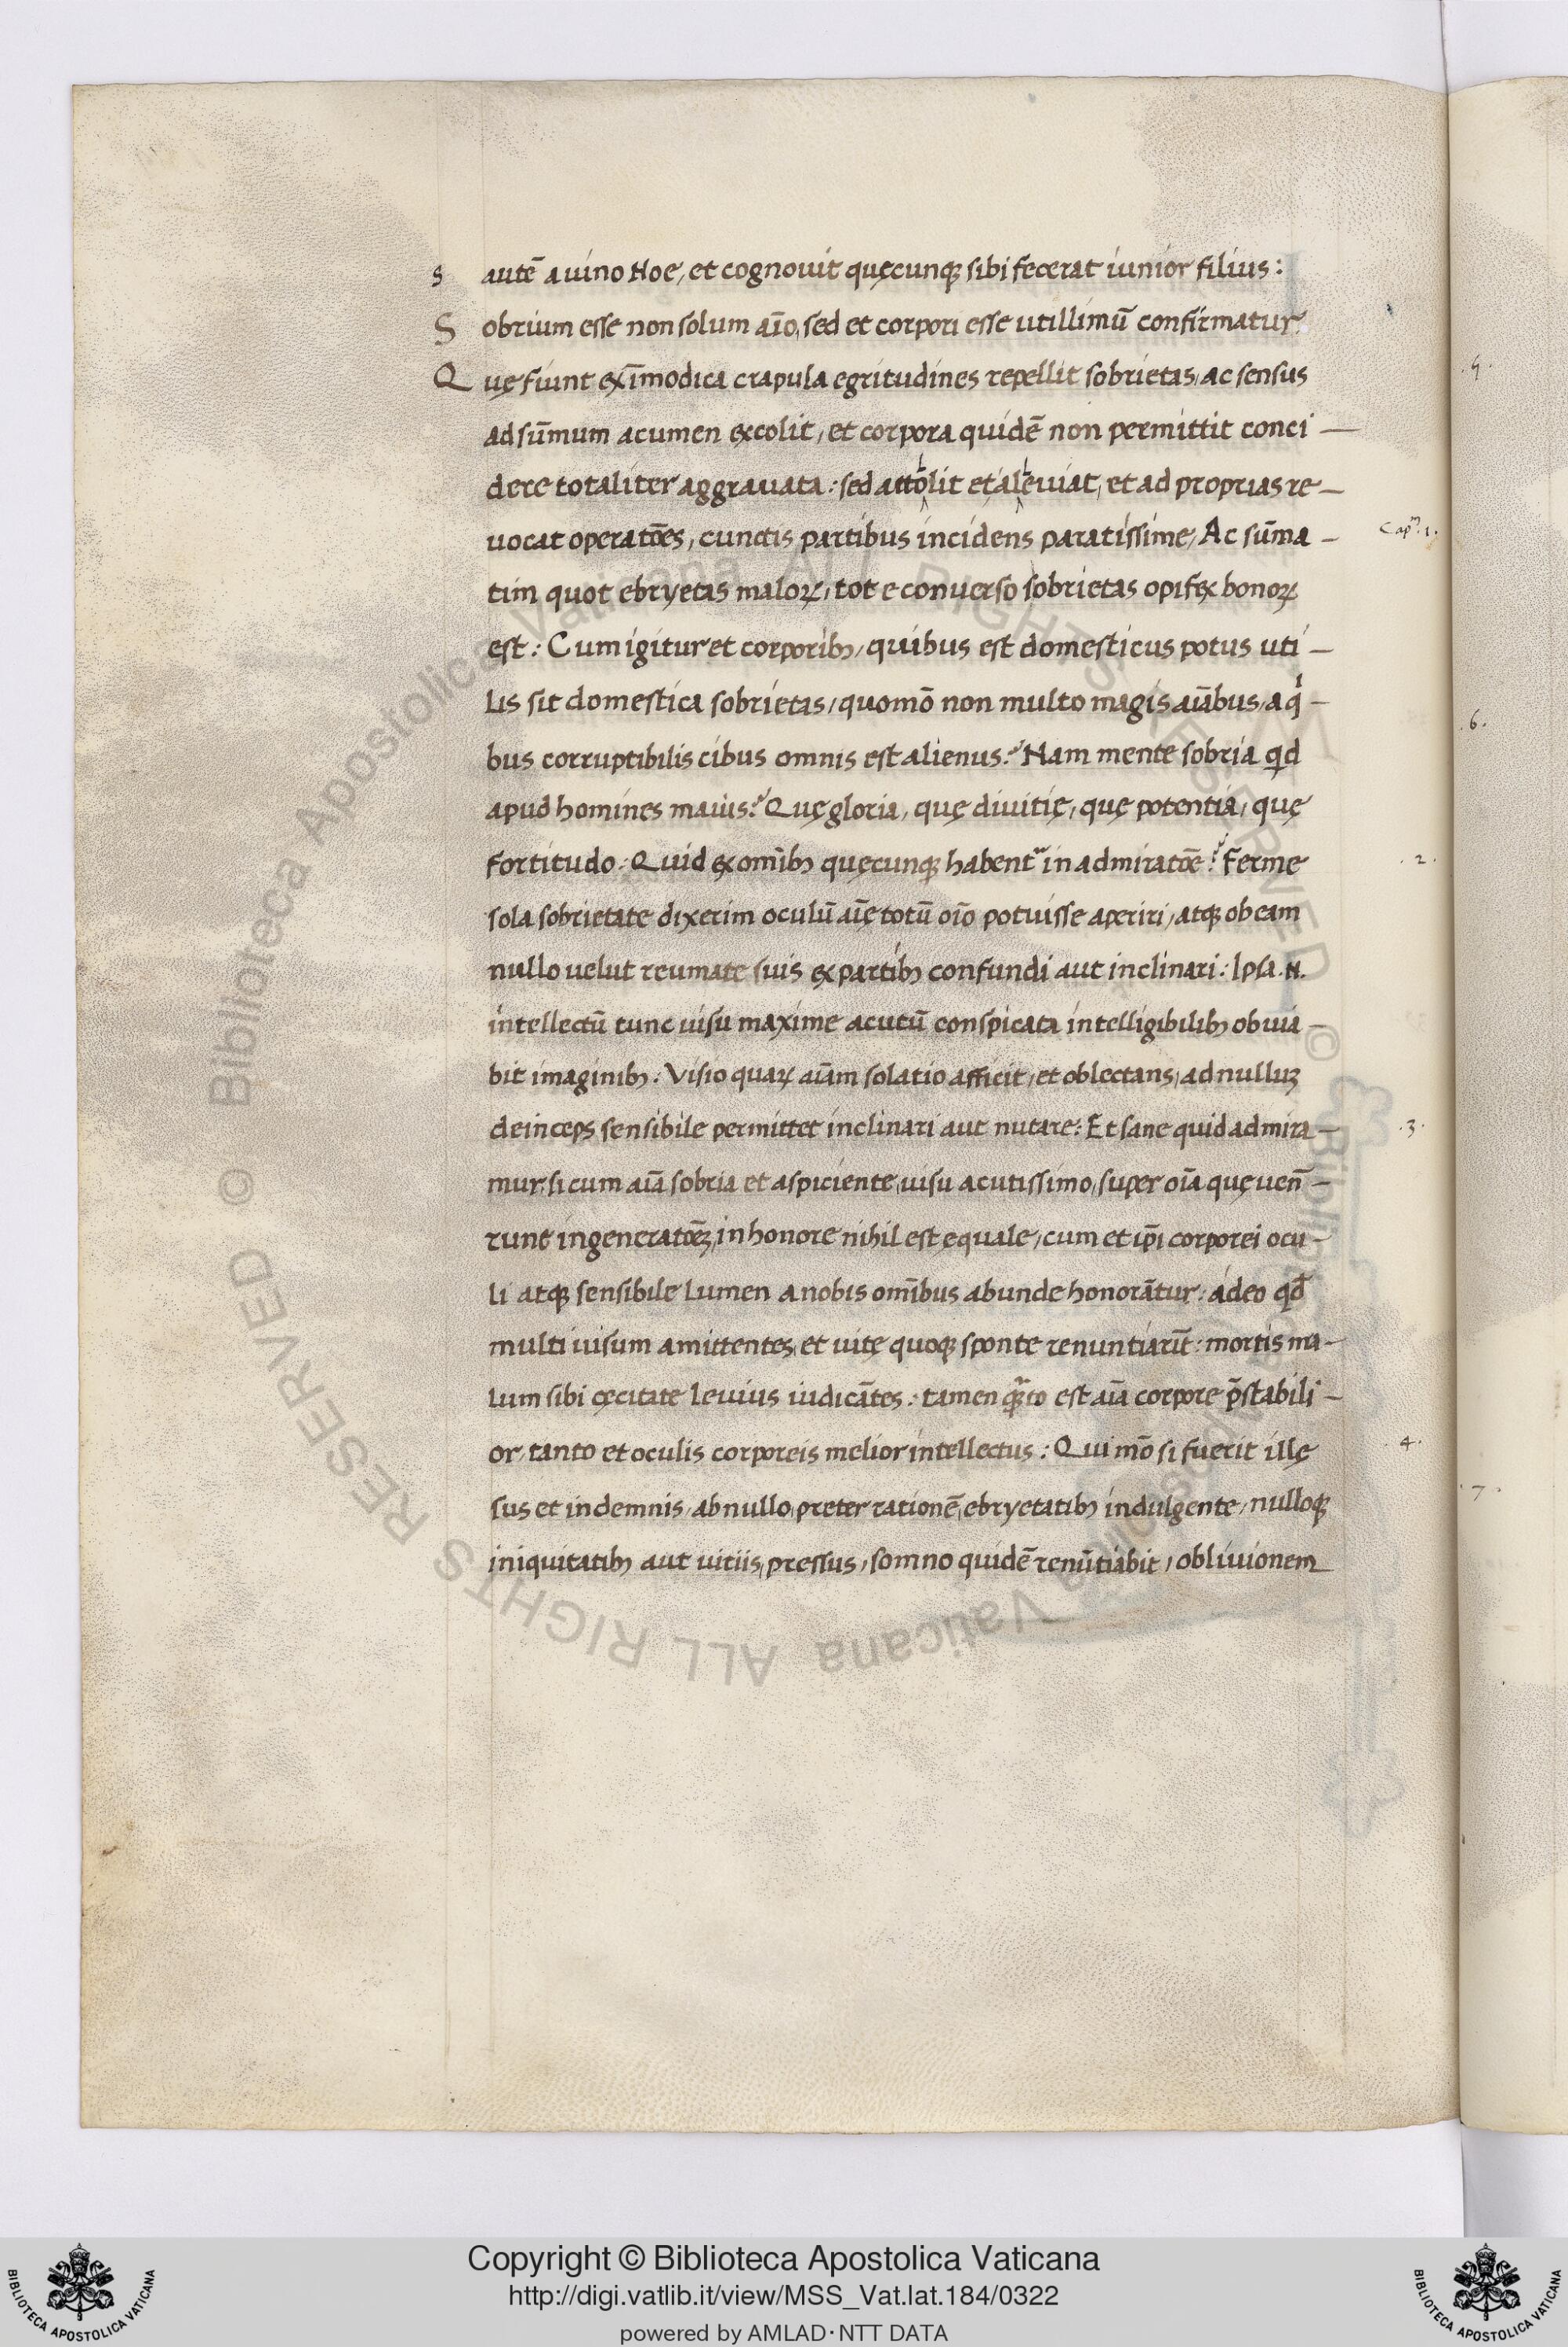 s autē a uino Noe, et cognouit quęcunqꝫ sibi fecerat iunior filius:
S obrium esse non solum aīo, sed et corpori esse utillimū confirmatur.
Q uę fiunt ex īmodica crapula egritudines repellit sobrietas, ac sensus
.5.
ad sūmum acumen excolit, et corpora quidē non permittit conci—
dere totaliter aggrauata: sed attollit et alleuiat, et ad proprias re—
uocat operatōes, cunctis partibus incidens paratissime, Ac sūma—
Cap.m 1.
tim quot ebryetas maloꝝ, tot e conuerso sobrietas opifex bonoꝝ
est: Cum igitur et corporibꝫ, quibus est domesticus potus uti—
lis sit domestica sobrietas, quomō non multo magis aīabus, a qⁱ—
.6.
bus corruptibilis cibus omnis est alienus? Nam mente sobria qid
apud homines maius? Quę gloria, quę diuitię, quę potentia, quę
fortitudo: Quid ex omībꝫ quęcunqꝫ habentʳ in admiratōe? Ferme
.2.
sola sobrietate dixerim oculū aīę totū oīo potuisse aperiri, atqꝫ ob eam
nullo uelut reumate suis ex partibꝫ confundi aut inclinari: Ipsa .N.
intellectū tunc uisu maxime acutū conspicata intelligibilibꝫ obuia—
bit imaginibꝫ: Visio quaꝝ aīam solatio afficit, et oblectans, ad nulluꝫ
deinceps sensibile permittet inclinari aut nutare: Et sane quid admira—
.3.
mur, si cum aīa sobria et aspiciente, uisu acutissimo, super oīa quę uen̄—
runt in generatōeꝫ, in honore nihil est equale, cum et ip̄i corporei ocu—
li atqꝫ sensibile lumen a nobis omībus abunde honorātur: adeo qd̄
multi uisum amittentes, et uitę quoqꝫ sponte renuntiarūt: mortis ma—
lum sibi cęcitate leuius iudicātes: tamen qᵃ̄to est aīa corpore p̄stabili—
or, tanto et oculis corporeis melior intellectus: Qui mō si fuerit illę
4.
sus et indemnis, ab nullo, preter rationē, ebryetatibꝫ indulgente, nulloqꝫ
.7.
iniquitatibꝫ aut uitiis, pressus, somno quidē renūtiabit, obliuionem
© Biblioteca Apostolica Vaticana ALL RIGHTS RESERVED
© Biblioteca Apostolica Vaticana ALL RIGHTS RESERVED
Copyright © Biblioteca Apostolica Vaticana
http://digi.vatlib.it/view/MSS_Vat.lat.184/0322
powered by AMLAD·NTT DATA
BIBLIOTECA APOSTOLICA VATICANA
BIBLIOTECA APOSTOLICA VATICANA